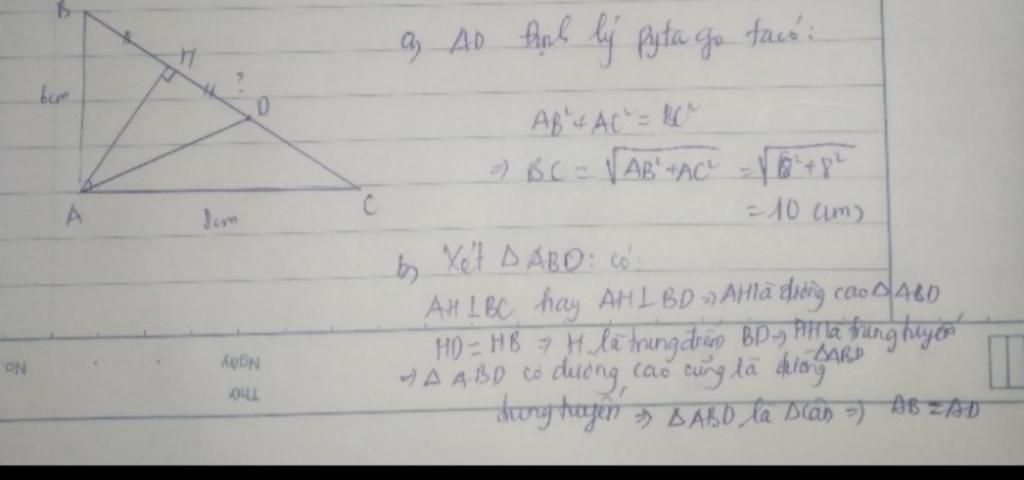 B
H
6cm
?
D
A
8cm
C
a) AD định lý pytago ta có:
AB²+AC² = BC²
=> BC = √AB²+AC² = √6²+8²
= 10 (cm)
b) Xét △ ABD: có:
AH⊥BC hay AH⊥BD => AH là đường cao △ ABD
HD = HB => H là trung điểm BD => AH là trung tuyến △ABD
=> △ ABD có đường cao cũng là đường
trung tuyến => △ABD là △cân => AB = AD
No.
Ngày
Thứ